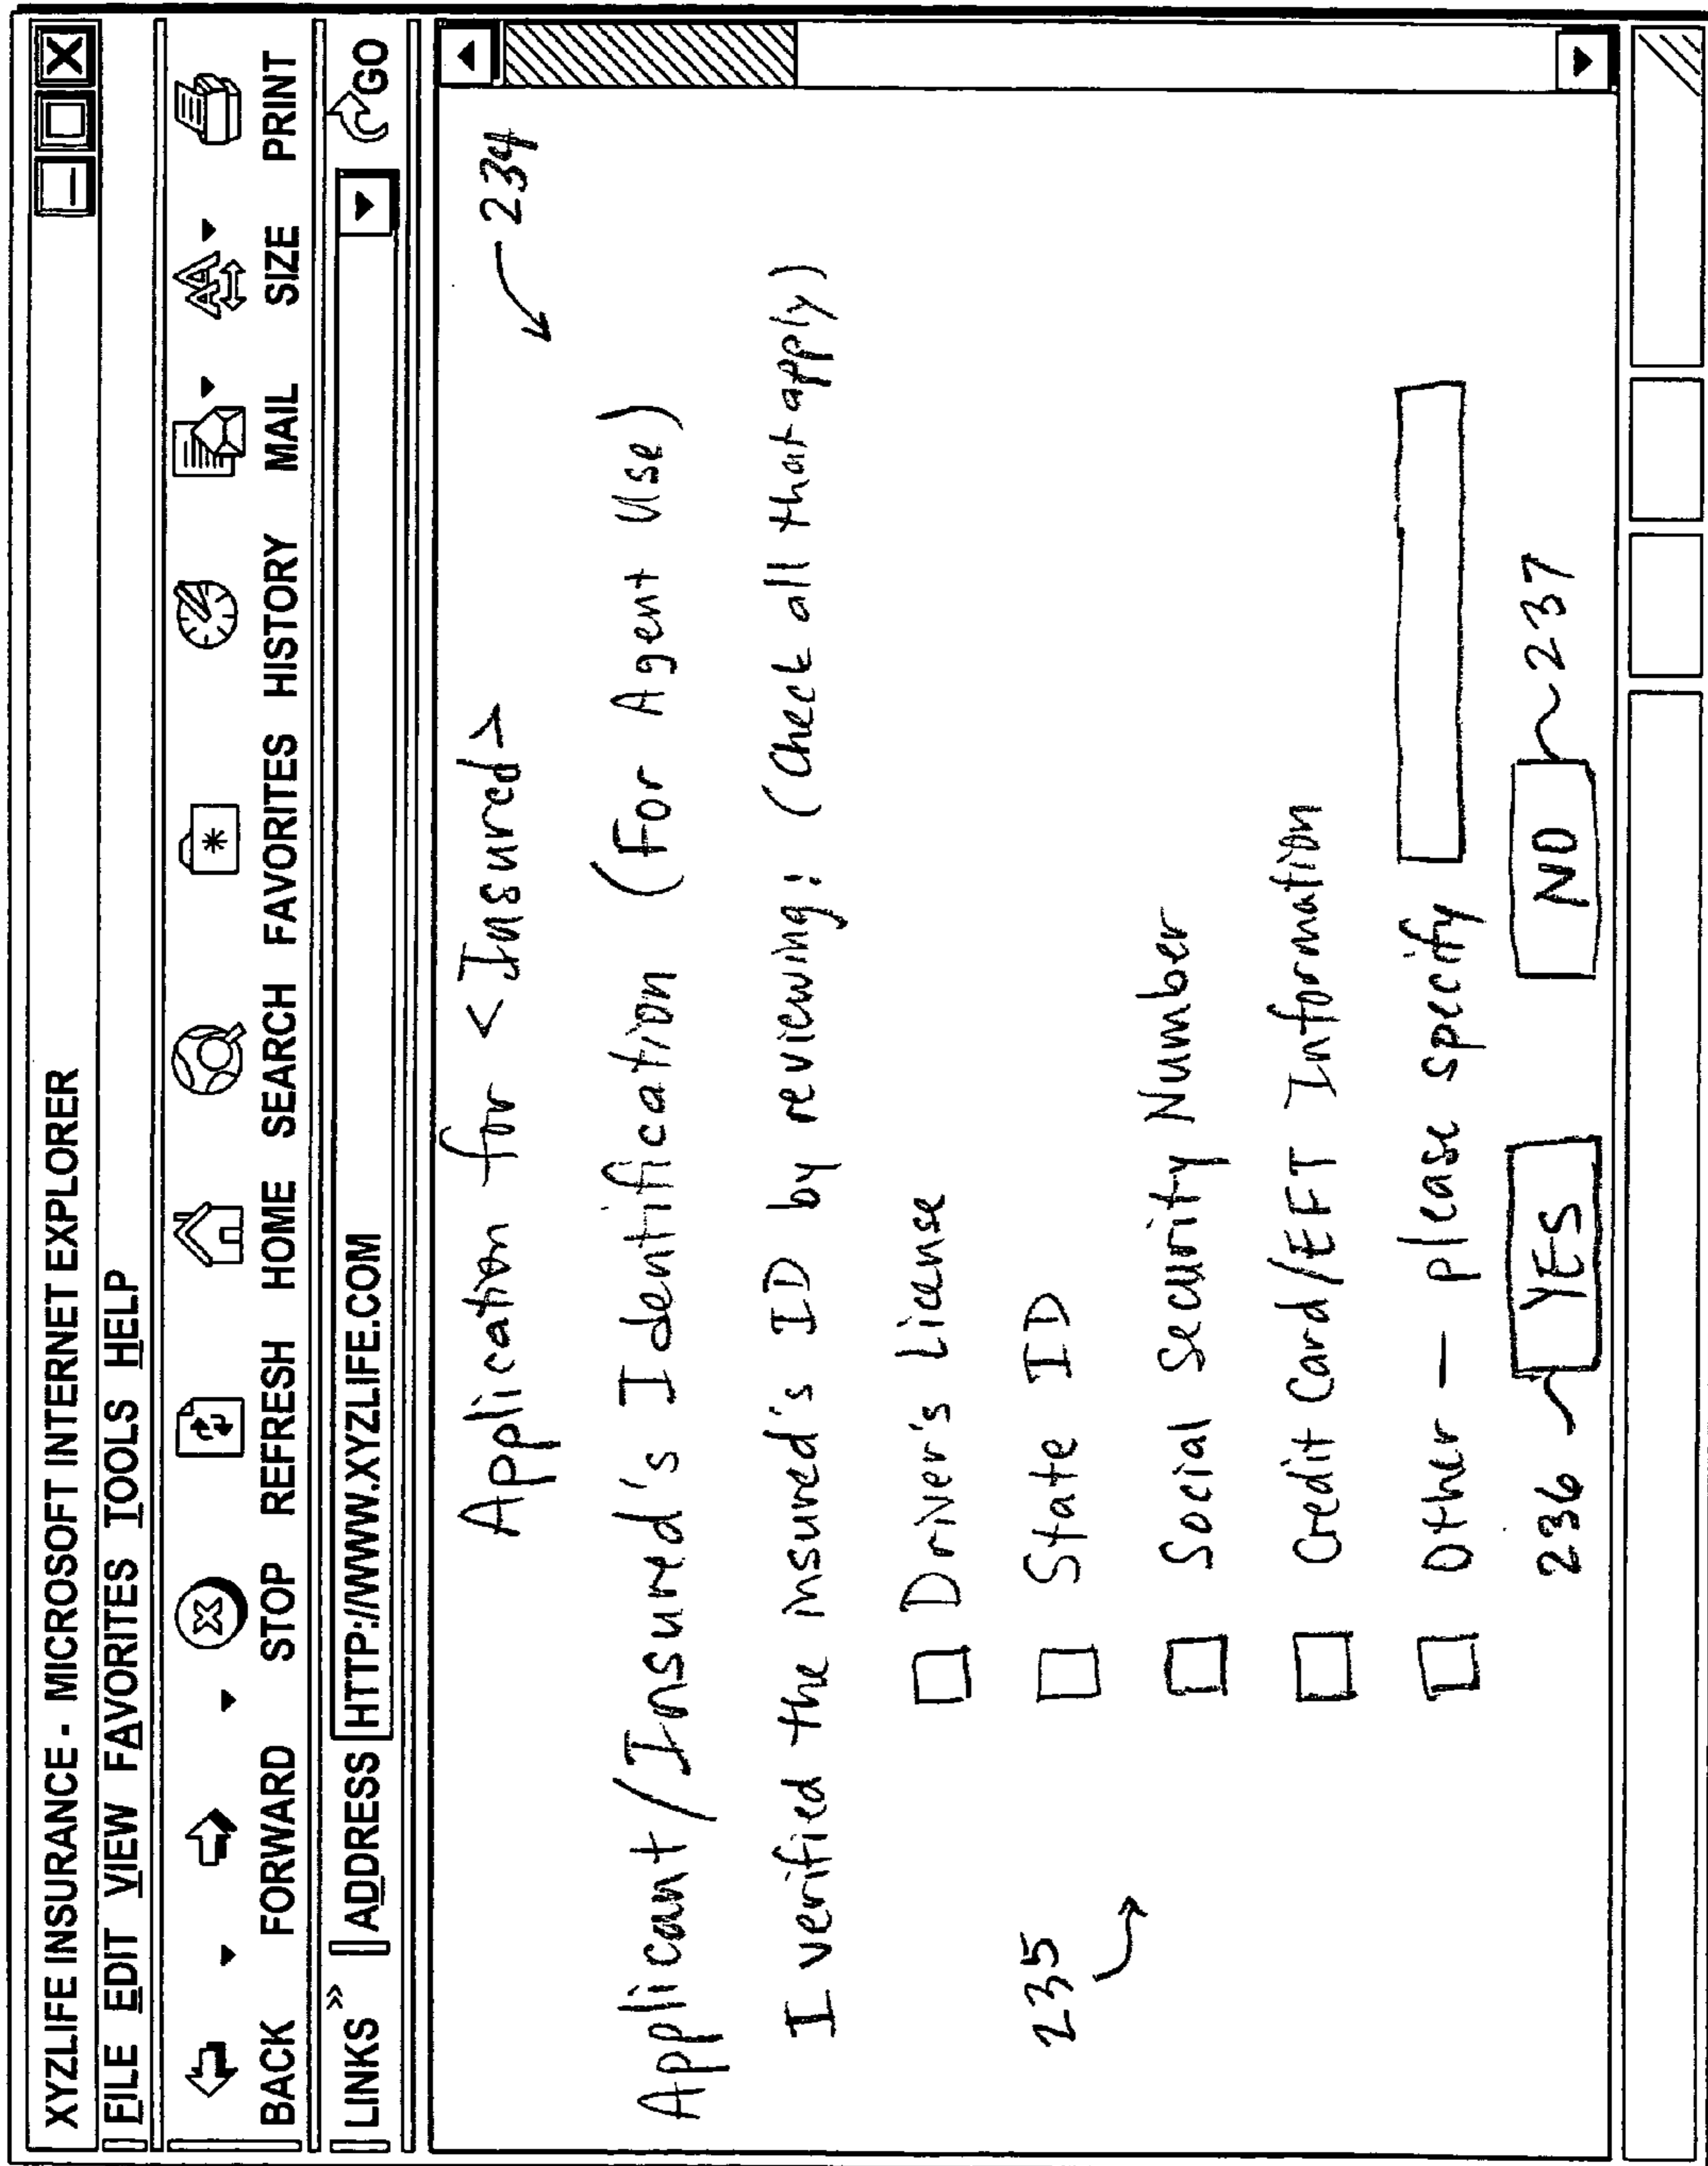 XYZLIFE INSURANCE - MICROSOFT INTERNET EXPLORER
FILE EDIT VIEW FAVORITES TOOLS HELP
BACK FORWARD STOP REFRESH HOME SEARCH FAVORITES HISTORY MAIL SIZE PRINT
LINKS » ADDRESS HTTP://WWW.XYZLIFE.COM GO
Application for <Insured>
234
Applicant/Insured's Identification (For Agent Use)
I verified the insured's ID by reviewing: (Check all that apply)
Driver's License
235
State ID
Social Security Number
Credit Card/EFT Information
Other - please specify
236 YES NO 237